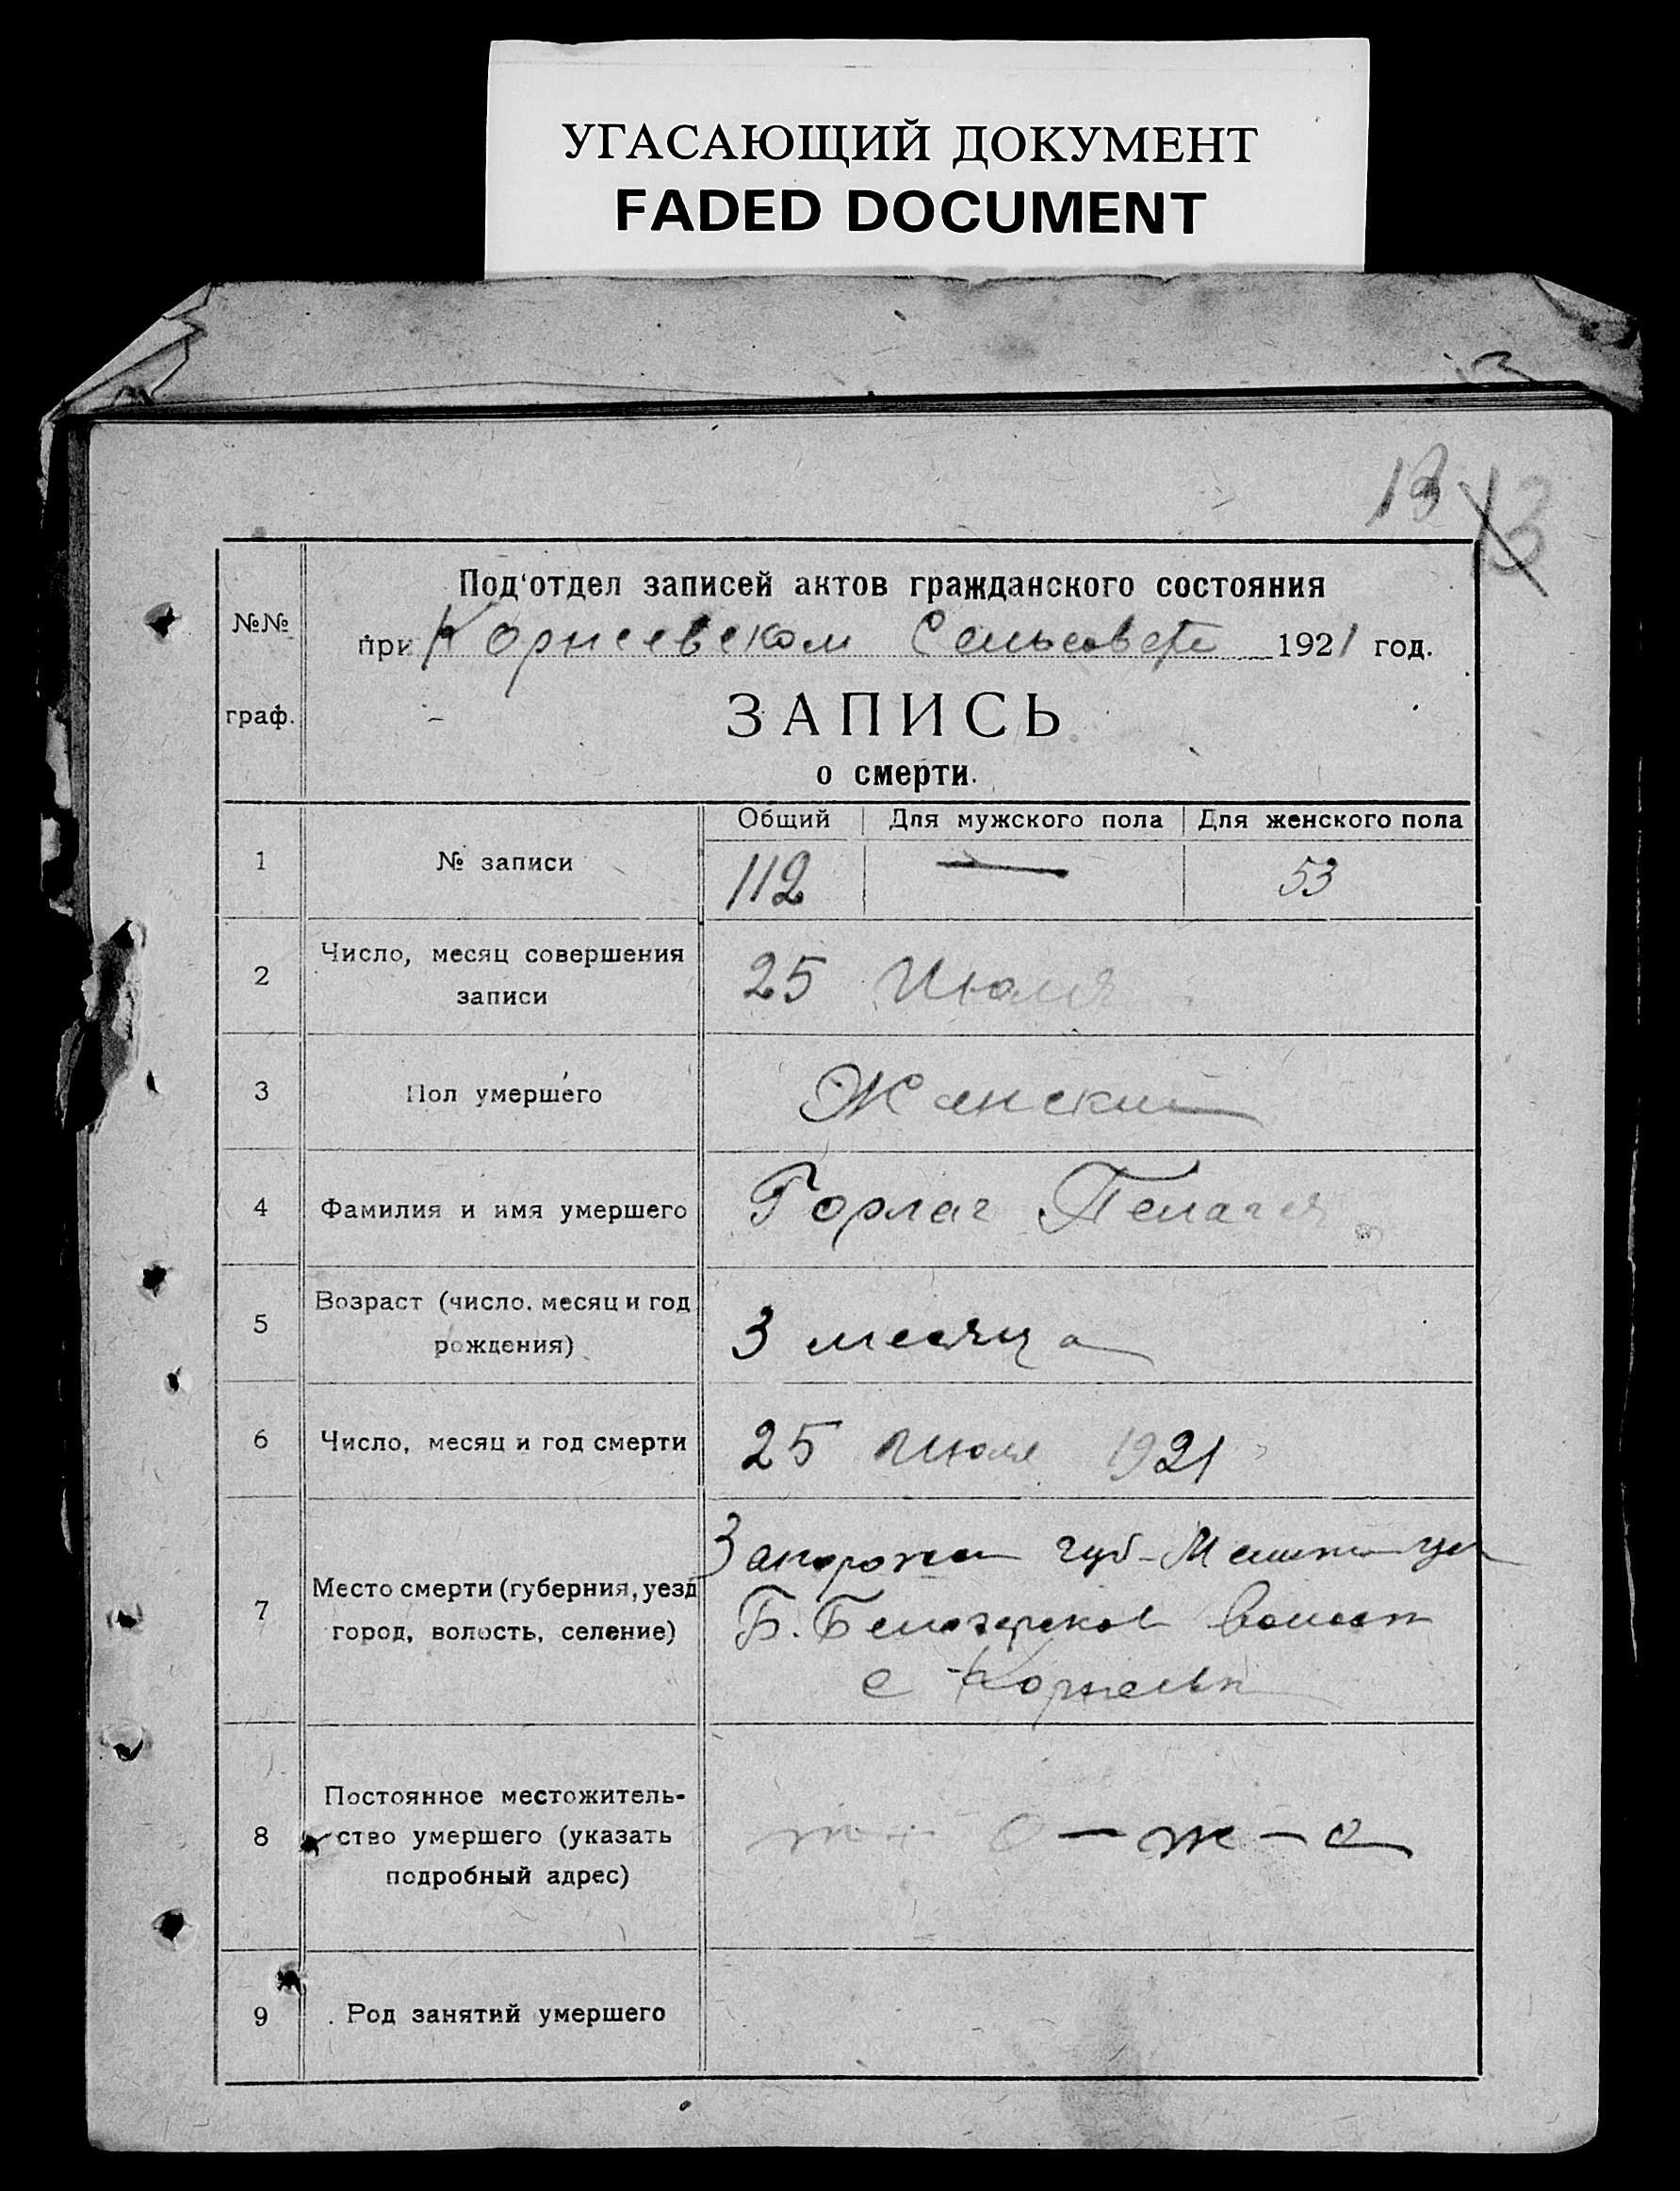 УГАСАЮЩИЙ ДОКУМЕНТ
FADED DOCUMENT
13 13
№№ граф.
Под'отдел записей актов гражданского состояния
при Корнеевском Сельсовете 1921 год.
ЗАПИСЬ
о смерти.
Общий Для мужского пола Для женского пола
1 № записи 112 — 53
2 Число, месяц совершения
записи 25 Июля
3 Пол умершего Женский
4 Фамилия и имя умершего Горлач Пелагея
5 Возраст (число, месяц и год
рождения) 3 месяца
6 Число, месяц и год смерти 25 Июля 1921
7 Место смерти (губерния, уезд
город, волость, селение)
Запорожск губ-
Б. Белозерской волости
с
8 Постоянное местожитель-
ство умершего (указать
подробный адрес)
то - ж - е
9 Род занятий умершего